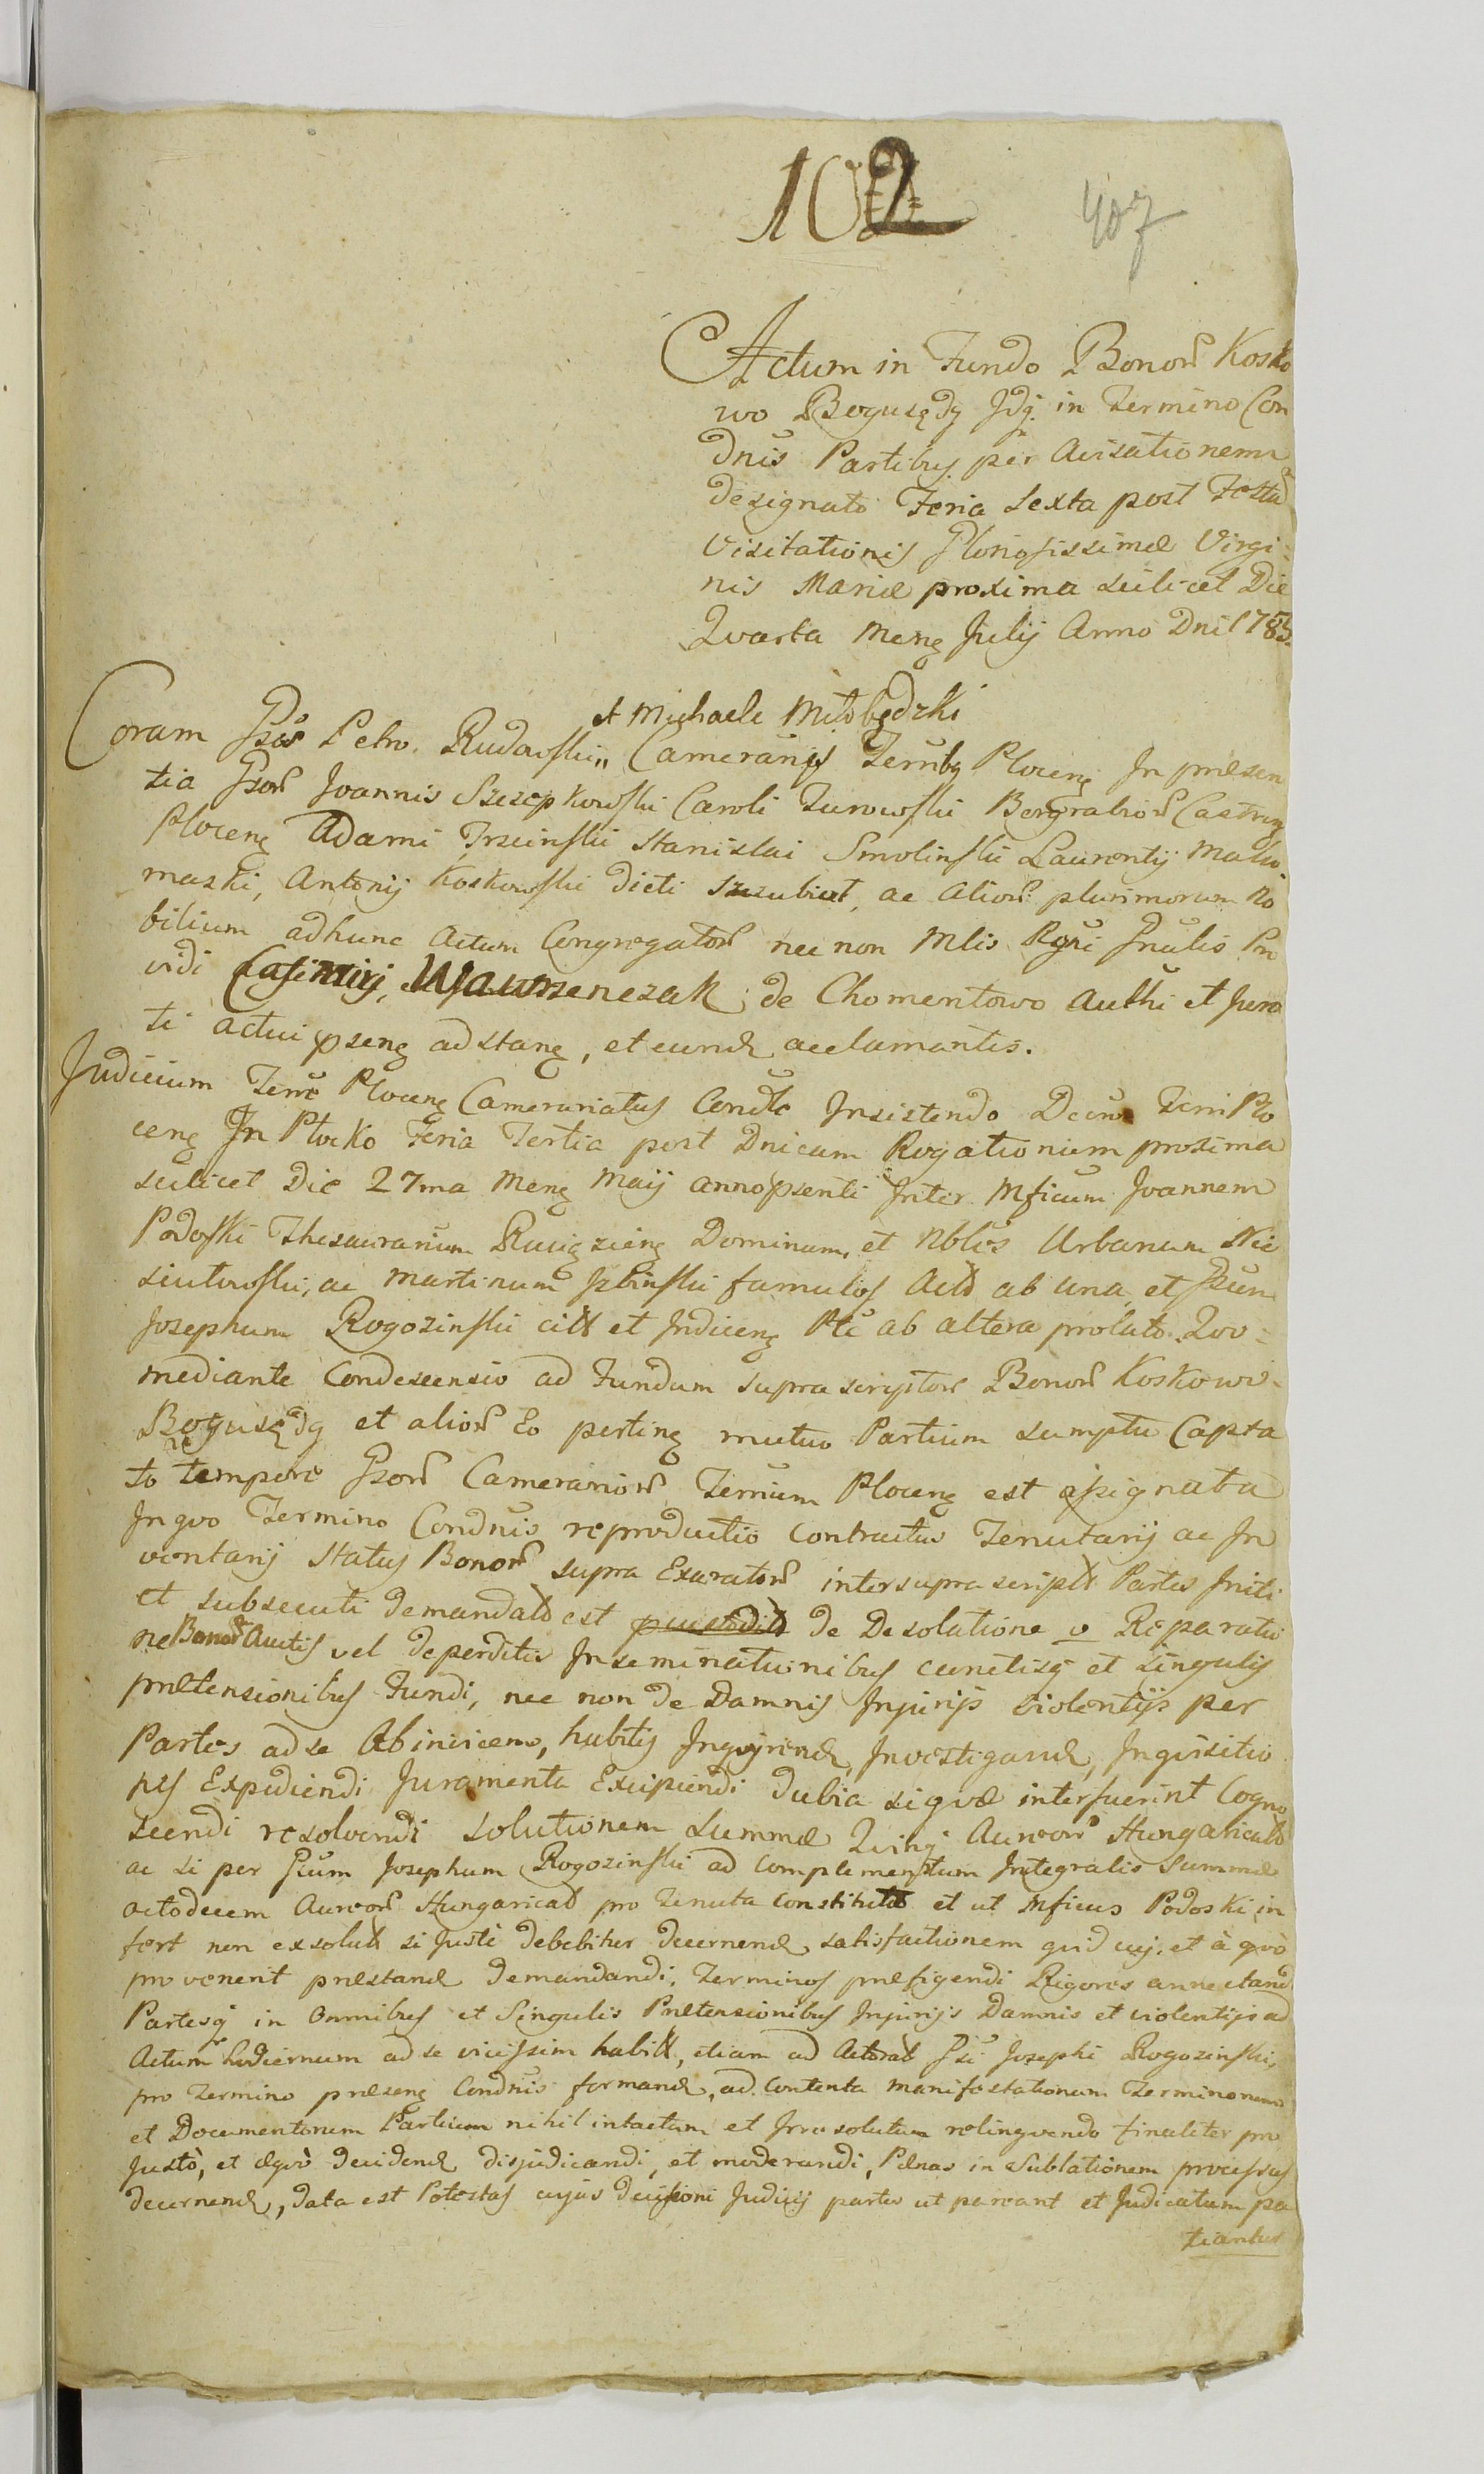 102
407
Actum in Fundo Bonor Kosko
wo Bogusędy Jdą. in Termino Con
dnis Partibus per Avisationem
designato Feria Sexta post Festu
Visitationis Gloriosissimæ Virgi=
nis Mariæ proxima scilicet Die
Qvarta Mens Julij Anno Dni 1783.
et Michaele Miłobędzki
Coram Gsis Petro Rudowski Camerarijs Terribs Plocens In præsen
tia Gsor Joannis Szczepkowski Caroli Zurowski Burgrabior Castrens
Plocens Adami Trzcinski Stanislai Smolinski Laurentij Malo
maski, Antonij Koskowski dicti Szczubiał, ac alior plurimorum No
bilium adhunc Actum Congregator nec non Mlis Rgni Gnalis Pro
vidi Casimirj Wawrzenczak de Chomentowo Authi et Jura
ti actui psens adstans, et eund acclamantis.
Judicium Terre Plocens Camerariatus Condle Insistendo Decreo Terri Plo
cens In Plocko Feria Tertia post Dnicam Rogationum proxima
scilicet Die 27ma Mens Maij anno psenti Inter Mficum Joannem
Podoski Thesaurarium Rugzieng Dominum, et Nbles Urbanum Nie
siutowski, ac Martinum Jzbinski famulos Act ab una, et Gsum
Josephum Rogozinski citt et Indicens Pte ab altera prolato. Qvo=
mediante Condescensio ad Fundum supra scriptor Bonor Koskowo
Bogusędy et alior Eo pertinens mutuo Partium sumptu Capta
to tempore Gsor Camerarior Terrium Plocens est assignata
In qvo Termino Condnis reproductio Contractus Tenutarij ac In
ventarij Status Bonor supra Exarator inter supra script Partes Initi
et subsecuti demandato est de Desolatione v Reparatio
ne Bonor Auctis vel deperditis Inseminationibus cunctisq et singulis
prætensionibus Fundi, nec non de Damnis Injurijs violentijs per
Partes ad se Abinvicem, habitis Inqvirend, Investigand, Inqvisitio
nes Expediendi Juramenta Excipiendi dubia si qvæ interfuerint Cogno
scendi resolvendi solutionem summæ Qvinq Aureor Hungaricalo
ac si per Gsum Josephum Rogozinski ad Complementum Integralis Summæ
octodecem Aureor Hungarical pro Tenuta constitut et ut Mficus Podoski in
fert non exsolut si Juste debebitur decernend satisfactionem qvid cuj. et à qvo
provenerit præstand demandandi, Terminos præfigendi Rigores annectand
Partesq in omnibus et Singulis Prætensionibus Injurijs Damnis et violentijs ad
Actum hodiernum ad se vicissim habitt, etiam ad Actorat Gsi Josephi Rogozinski,
pro Termino præsens Condnis formand, ad Contenta Manifestationum Terminorum
et Documentorum Partium nihil intactum et Irresolutum relinqvendo finaliter pro
Justo, et æqvo decidend disjudicandi, et moderandi, Pænas in Sublationem processus
decernend, data est Potestas cujus decisioni Judicij partes ut pareant et Judicatum pa
tiantur